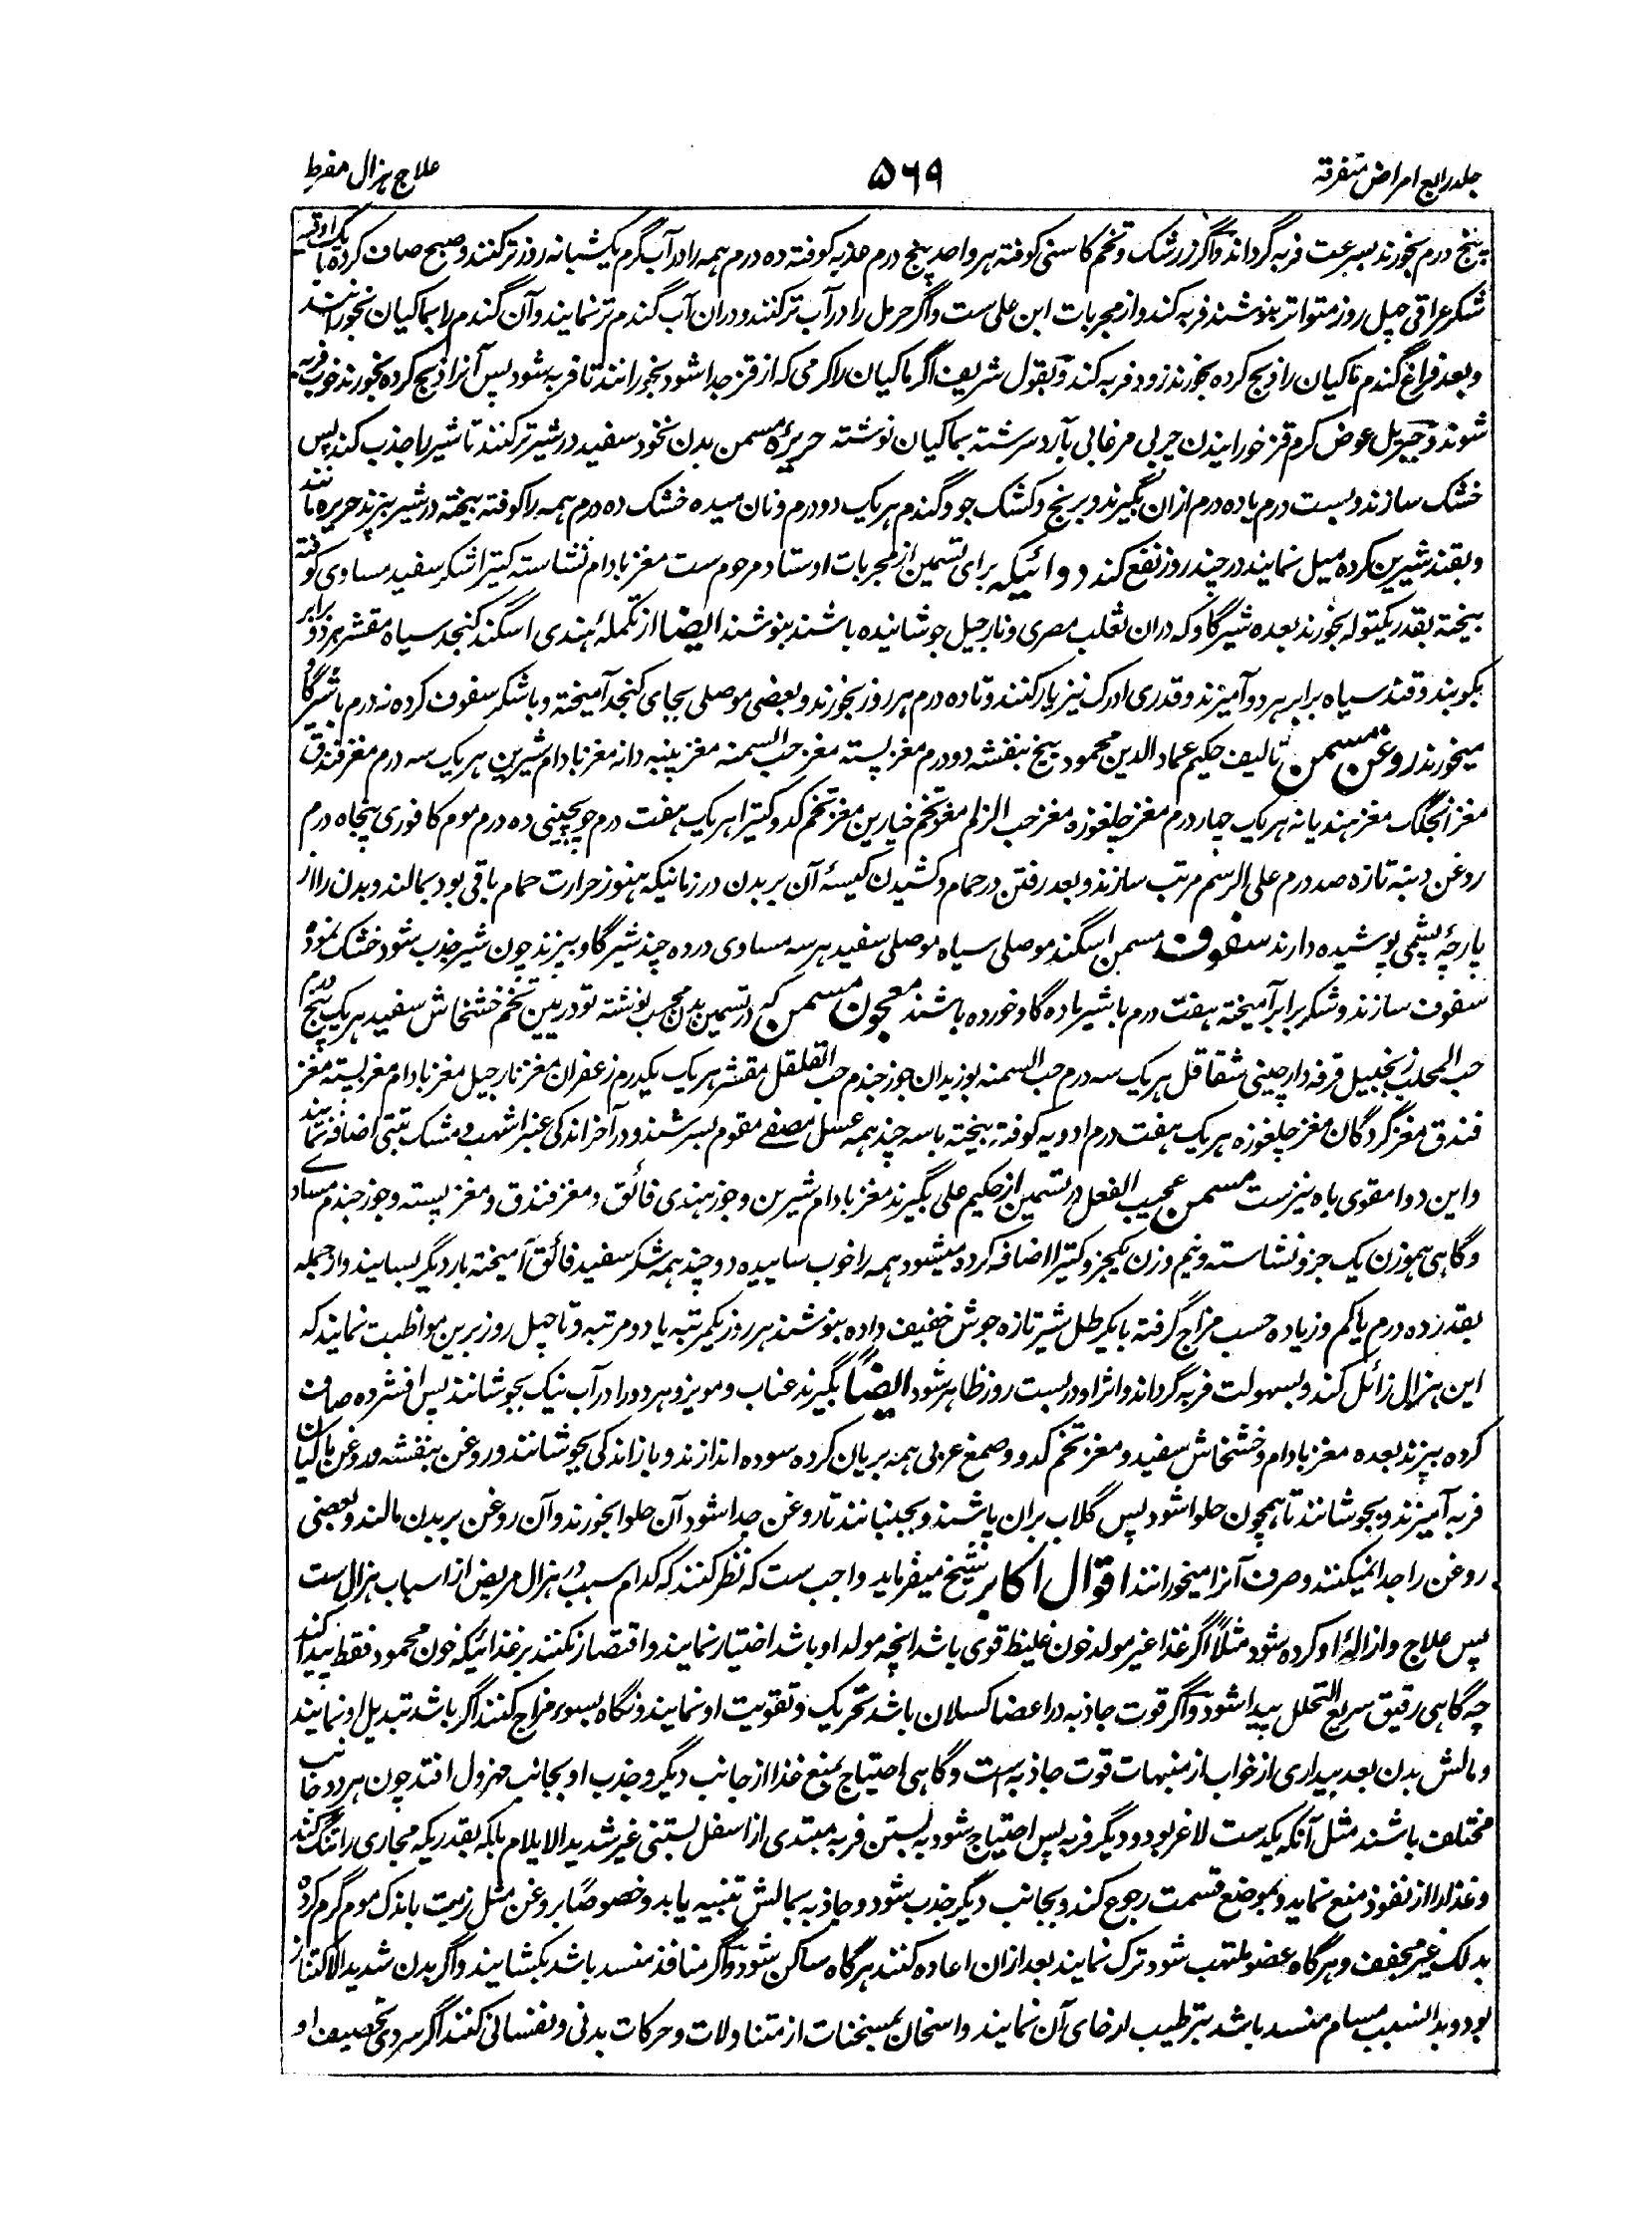 جلد رابع امراض متفرقہ
۵۶۹
علاج ہزال مفرط
پنج درم بخورند بسرعت فربہ گرداند و اگر زرشک و تخم کاسنی کوفتہ ہر واحد پنج درم حذبہ کوفتہ دہ درم ہمہ را در آب گرم یکشبانہ روز تر کنند و صبح صاف کردہ با یک اوقیہ
شکر عراقی چہل روز متواتر بنوشند فربہ کند و از مجربات ابن علی ست و اگر حرمل را در آب تر کنند و دران آب گندم تر نمایند و آن گندم را بماکیان بخورانند
و بعد فراغ گندم ماکیان را ذبح کردہ بخورند زود فربہ کند و بقول شریف اگر ماکیان را کرمی کہ از قز جدا شود بخورانند تا فربہ شود پس آنرا ذبح کردہ بخورند خوب فربہ
شوند و جبریل عوض کرم قز خورانیدن چربی مرغابی بآرد سرشتہ بماکیان نوشتہ حریرۂ مسمن بدن نخود سفید در شیر تر کنند تا شیر را جذب کند پس
خشک سازند و بست درم یا دہ درم ازان بگیرند و برنج و کشک جو و گندم ہر یک دو درم و نان میدہ خشک دہ درم ہمہ را کوفتہ بیختہ در شیر بپزند حریرہ مانند
و بقند شیرین کردہ میل نمایند در چند روز نفع کند دوائیکہ برای تسمین از مجربات اوستاد مرحوم ست مغز بادام نشاستہ کتیرا شکر سفید مساوی کوفتہ
بیختہ بقدر یکتولہ بخورند بعدہ شیر گاو کہ دران ثعلب مصری و نارجیل جوشانیدہ باشند بنوشند ایضا از تکملۂ ہندی اسگند کنجد سیاہ مقشر ہر دو برابر
بکوبند و قند سیاہ برابر ہر دو آمیزند و قدری ادرک نیز یار کنند و تا دہ درم ہر روز بخورند و بعضی موصلی بجای کنجد آمیختہ و با شکر سفوف کردہ نہ درم با شیر گاو
میخورند روغن مسمن تالیف حکیم عماد الدین محمود بیخ بنفشہ دو درم مغز پستہ مغز حب السمنہ مغز پنبہ دانہ مغز بادام شیرین ہر یک سہ درم مغز فندق
مغز انجکک مغز ہندیانہ ہر یک چہار درم مغز چلغوزہ مغز حب الزلم مغز تخم خیارین مغز تخم کدو کتیرا ہر یک ہفت درم چوبچینی دہ درم موم کافوری پنجاہ درم
روغن دنبہ تازہ صد درم علی الرسم مرتب سازند و بعد رفتن در حمام و کشیدن کیسۂ آن بر بدن در زمانیکہ ہنوز حرارت حمام باقی بود بمالند و بدن را از
پارچۂ پشمی پوشیدہ دارند سفوف مسمن اسگند موصلی سیاہ موصلی سفید ہر سہ مساوی در دہ چند شیر گاو بپزند چون شیر جذب شود خشک نمودہ
سفوف سازند و شکر برابر آمیختہ ہفت درم با شیر مادہ گاو خوردہ باشند معجون مسمن کہ در تسمین بدن مجرب نوشتہ تودریین تخم خشخاش سفید ہر یک پنج درم
حب المحلب زنجبیل قرفہ دارچینی شقاقل ہر یک سہ درم حب السمنہ بوزیدان جوز جندم حب القلقل مقشر ہر یک یکدرم زعفران مغز نارجیل مغز بادام مغز پستہ مغز
فندق مغز گردگان مغز چلغوزہ ہر یک ہفت درم ادویہ کوفتہ بیختہ با سہ چند ہمہ عسل مصفی مقوم بسرشند و در آخر اندکی عنبر اشہب و مشک تبتی اضافہ نمایند
و این دوا مقوی باہ نیز ست مسمن عجیب الفعل در تسمین از حکیم علی بگیرند مغز بادام شیرین و جوز ہندی فائق و مغز فندق و مغز پستہ و جوز جندم مساوے
و گاہی ہموزن یک جزو نشاستہ و نیم وزن یکجزو کتیرا اضافہ کردہ میشود ہمہ را خوب ساییدہ دو چند ہمہ شکر سفید فائق آمیختہ بار دیگر بسایند و از جملہ
بقدر دہ درم یا کم و زیادہ حسب مزاج گرفتہ با یکرطل شیر تازہ جوش خفیف دادہ بنوشند ہر روز یکمرتبہ یا دو مرتبہ و تا چہل روز برین مواظبت نمایند کہ
این ہزال زائل کند و بسہولت فربہ گرداند و اثر او در بست روز ظاہر شود ایضاً بگیرند عناب و مویز و ہر دو را در آب نیک بجوشانند پس افشردہ صاف
کردہ بپزند بعدہ مغز بادام و خشخاش سفید و مغز تخم کدو و صمغ عربی ہمہ بریان کردہ سودہ اندازند و باز اندکی بجوشانند و روغن بنفشہ و روغن ماکیان
فربہ آمیزند و بجوشانند تا ہمچون حلوا شود پس گلاب بران پاشند و بجنبانند تا روغن جدا شود آن حلوا بخورند و آن روغن بر بدن مالند و بعضی
روغن را جدا نمیکنند و صرف آنرا میخورانند اقوال اکابر شیخ میفرماید واجب ست کہ نظر کنند کہ کدام سبب در ہزال مریض از اسباب ہزال ست
پس علاج و ازالۂ او کردہ شود مثلاً اگر غذا غیر مولد خون غلیظ قوی باشد انچہ مولد او باشد اختیار نمایند و اقتصار نکنند بر غذائیکہ خون محمود فقط پیدا کند
چہ گاہی رقیق سریع التحلل پیدا شود و اگر قوت جاذبہ در اعضا کسلان باشد تحریک و تقویت او نمایند و نگاہ بسوء مزاج کنند اگر باشد تبدیل او نمایند
و مالش بدن بعد بیداری از خواب از منبہات قوت جاذبہ است و گاہی احتیاج بمنع غذا از جانب دیگر و جذب او بجانب مہزول افتد چون ہر دو جانب
مختلف باشند مثل آنکہ یکدست لاغر بود و دیگر فربہ پس احتیاج شود بہ بستن فربہ مبتدی از اسفل بستنی غیر شدید الایلام بلکہ بقدریکہ مجاری را تنگ کند
و غذا را از نفوذ منع نماید و بموضع قسمت رجوع کند و بجانب دیگر جذب شود و جاذبہ بمالش تنبیہ یابد و خصوصاً بروغن مثل زیت باندک موم گرم کردہ
بدلک غیر مجفف و ہر گاہ عضو ملتہب شود ترک نمایند بعد ازان اعادہ کنند ہر گاہ ساکن شود و اگر منافذ منسد باشد بکشایند و اگر بدن شدید الاکتناز
بود و بدانسبب مسام منسد باشد بترطیب ارخای آن نمایند و اسخان بمسخنات از متناولات و حرکات بدنی و نفسانی کنند اگر سردی تحصیف او